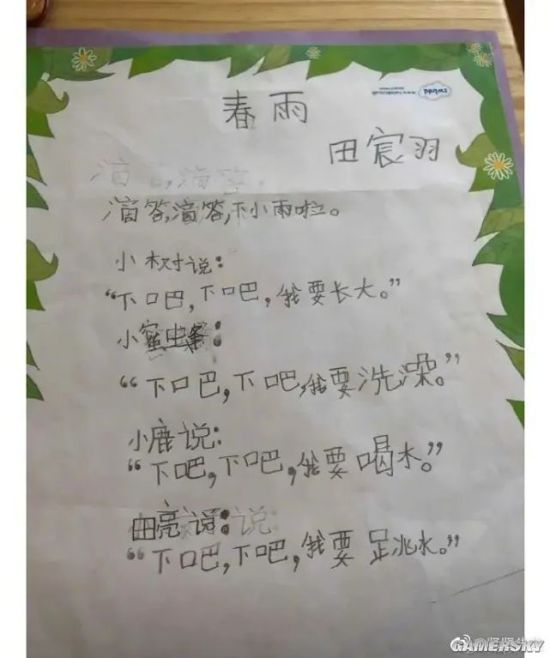 春雨
田宸羽
滴答,滴答,下小雨啦。
小树说:
“下吧,下吧,我要长大。”
小蜜虫:
“下吧,下吧,我要洗澡。”
小鹿说:
“下吧,下吧,我要喝水。”
田亮说:说:
“下吧,下吧,我要跳水。”
GAMERSKY